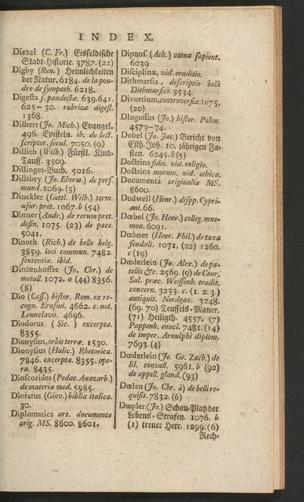 INDEX.
Diezel (C. Fr.) Eißfeldische
Stadt-Historie. 3787. (22)
Digby (Ren.) Heimlichkeiten
der Natur. 6184. de la poudre
de sympath. 6218.
Digesta s. pandectæ. 639. 641.
625-30. rubricæ digest.
1368.
Dilherr (Jo. Mich.) Evangel.
496. Episteln. ib. de lect.
scriptor. secul. 7050. (9)
Dillich (Wilh.) Fürstl. Kind-
Tauff. 3509.
Dillinger-Buch. 5016.
Dillthey (Jo. Eberw.) de pers.
mand. 1069. (3)
Dinckler (Gottl. Wilh.) term.
usur. pret. 1067. b (54)
Dinner (Andr.) de rerum pret.
desin. 1075. (23) de pace.
5041.
Dinoth (Rich.) de bello belg.
3859. loci commun. 7482.
sententiæ. ibid.
Dinzenhoffer (Jo. Chr.) de
metall. 1072. a (44) 8356.
(8)
Dio (Cass.) histor. Rom. ex recogn.
Erasmi. 4662. c. not.
Leunclavii. 4696.
Diodorus (Sic.) excerpta.
8355.
Dionysius, orbis terræ. 1530.
Dionysius (Halic.) Rhetorica.
7846. excerpta. 8355. opera.
8435.
Dioscorides (Pedac. Anazarb.)
de materia med. 5985.
Diotatus (Giov.) biblia italica.
30.
Diplomatica ars. documenta
orig. MS. 8600. 8601.
Dipnos. (Ath.) cœna sapient.
6039
Disciplinæ, vid. eruditio.
Dithmarsia, descriptio belli
Dithmarsici. 3534.
Divortium, controversiæ. 1075.
(20)
Dlugossus (Jo.) histor. Polon.
4573-74.
Dobel (Jo. Jac.) Bericht von
Esth. Joh. 10. jährigen Fasten.
6245. b (5)
Doctrina fidei. vid. religio.
Doctrina morum. vid. ethica.
Documenta originalia MS.
8600.
Dodwell (Henr.) dissp. Cypriani.
66.
Dœbel (Jo. Henr.) colleg. mnemon.
6091.
Dœbner (Henr. Phil.) de taxa
feudali. 1071. (22) 1260.
c (19)
Dœderlein (Jo. Alex.) de patellis
&c. 2569. (9) de Conr.
Sal. præc. Weissenb. tradit.
concern. 3233. c. (1. 2. 3)
antiquit. Nordgav. 3248.
(69. 70) Teuffels-Mauer.
(71) Heiligth. 4557. (7)
Poppenh. enucl. 7481. (14)
de imper. Arnulphi diplom.
7693. (4)
Dœderlein (Jo. Ge. Zach.) de
lil. convall. 5961. b (92)
de appell. gland. (93)
Dœlau (Jo. Chr. à) de belli requisit.
7832. (6)
Dœpler (Jo.) Schau-Platz der
Lebens-Strafen. 1076. b
(1) treuer Herr. 1299. (6)
Rech-